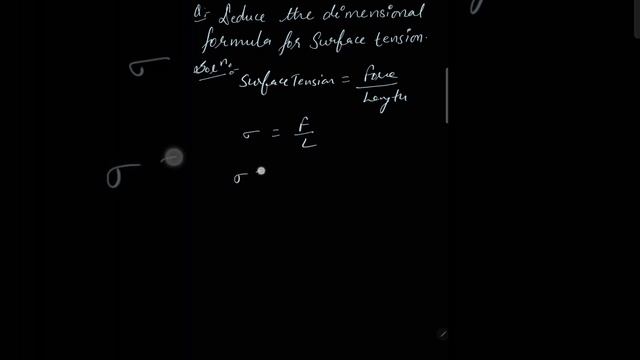 Q:- Deduce the dimensional
formula for Surface tension.
Sol^n:- Surface Tension = Force / Length
σ = F / L
σ